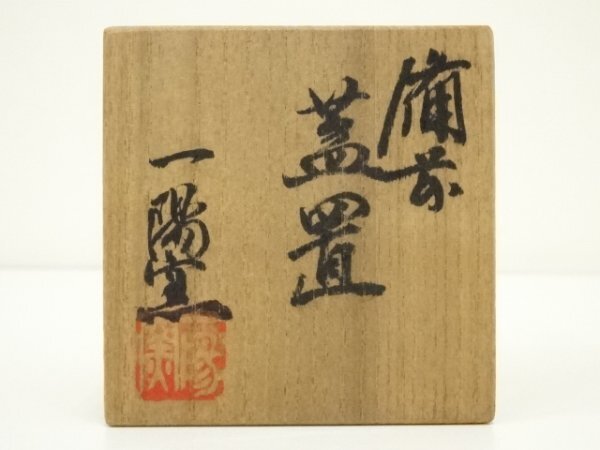 備前
蓋置
一陽窯